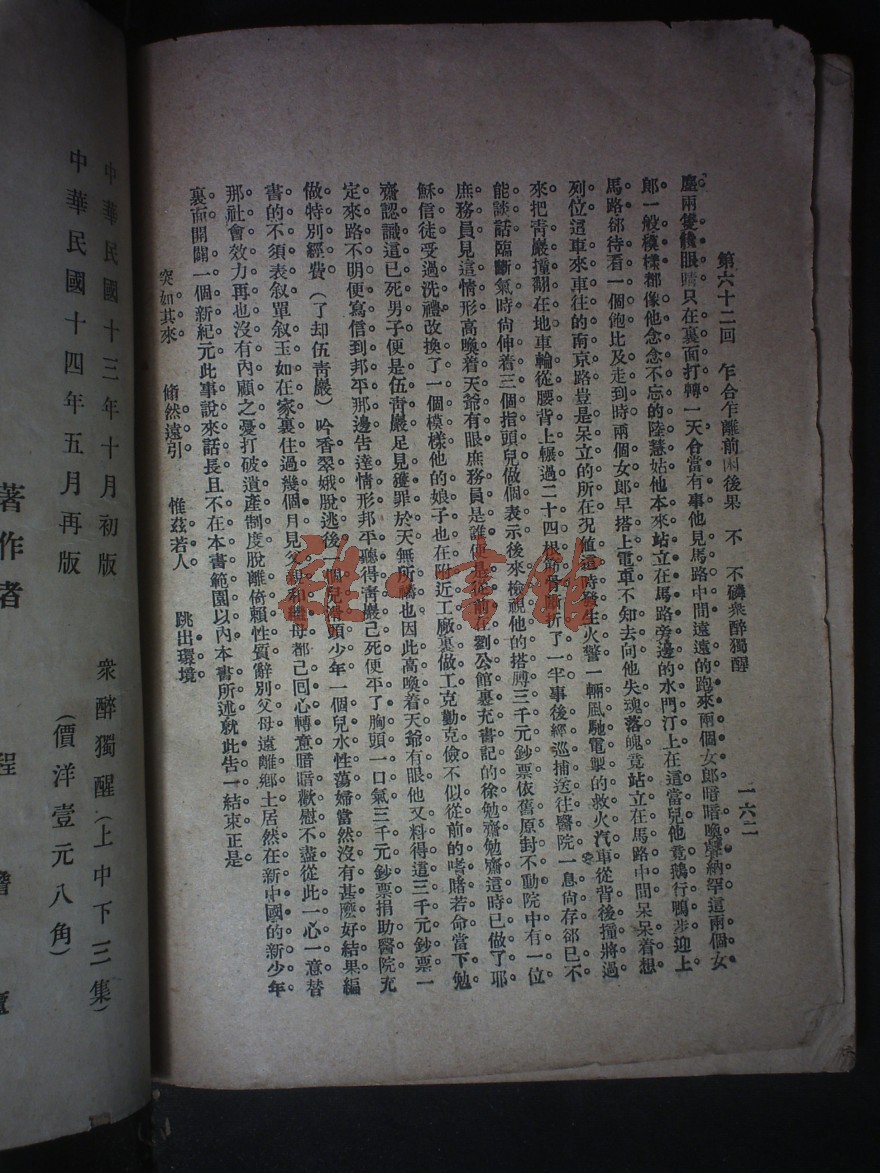 第六十二回 乍合乍離前因後果 不 不磷衆醉獨醒 一六二
塵兩雙餓眼睛只在裏面打轉一天合當有事他見馬路中間遠遠的跑來兩個女郎暗暗喚聲納罕這兩個女
郎一般模樣都像他念念不忘的陸慧姑他本來站立在馬路旁邊的水門汀上在這當兒他竟鵝行鴨步迎上
馬路卻待看一個飽比及走到時兩個女郎早搭上電車不知去向他失魂落魄竟站立在馬路中間呆呆着想
列位這車來車往的南京路豈是呆立的所在况值這時發生火警一輛風馳電掣的救火汽車從背後撞將過
來把青嚴撞翻在地車輪從腰背上輾過二十四根筋骨斷折了一半事後經巡捕送往醫院一息尙存卻已不
能談話臨斷氣時尙伸着三個指頭兒做個表示後來檢視他的搭膊三千元鈔票依舊原封不動院中有一位
庶務員見這情形高喚着天爺有眼庶務員是誰便是從前在劉公館裏充書記的徐勉齋勉齋這時已做了耶
穌信徒受過洗禮改換了一個模樣他的娘子也在附近工廠裏做工克勤克儉不似從前的嗜賭若命當下勉
齋認識這已死男子便是伍青嚴足見獲罪於天無所禱也因此高喚着天爺有眼他又料得這三千元鈔票一
定來路不明便寫信到邦平那邊告達情形邦平聽得青嚴已死便平了胸頭一口氣三千元鈔票捐助醫院充
做特別經費（了却伍青嚴）吟香翠娥脫逃後一個兒滑頭少年一個兒水性蕩婦當然沒有甚麼好結果編
書的不須表叙單叙玉如在家裏住過幾個月見父親和繼母都已回心轉意暗暗歡慰不盡從此一心一意替
那社會效力再也沒有內顧之憂打破遺產制度脫離倚賴性質辭別父母遠離鄉土居然在新中國的新少年
裏面開闢一個新紀元此事說來話長且不在本書範圍以內本書所述就此告一結束正是
突如其來 翛然遠引 惟茲若人 跳出環境
中華民國十三年十月初版 衆醉獨醒（上中下三集）
中華民國十四年五月再版 （價洋壹元八角）
著作者 程 瞻 廬
雜·書館